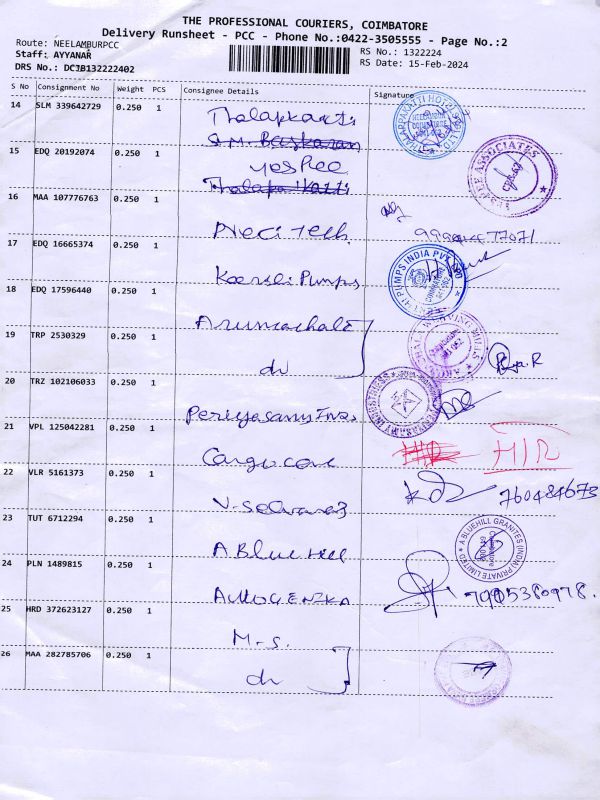 THE PROFESSIONAL COURIERS, COIMBATORE
Delivery Runsheet - PCC - Phone No.:0422-3505555 - Page No.:2
Route: NEELAMBURPCC
Staff: AYYANAR
DRS No.: DCJB132222402
RS No.: 1322224
RS Date: 15-Feb-2024
S No Consignment No Weight PCS Consignee Details Signature
14 SLM 339642729 0.250 1 Thalapkatti
S.M. Baskaran
15 EDQ 20192074 0.250 1 yespee
ASSOCIATES
16 MAA 107776763 0.250 1 Neci Tech
17 EDQ 16665374 0.250 1 Kaersli Pumps
PUMPS INDIA PVT LTD
18 EDQ 17596440 0.250 1 Arunachala
19 TRP 2530329 0.250 1 do
20 TRZ 102106033 0.250 1 Periyasamy Ins
21 VPL 125042281 0.250 1 Cargo care
22 VLR 5161373 0.250 1 V. Selvaraj 760484673
23 TUT 6712294 0.250 1 A Blue Hill
A BLUEHILL GRANITES (INDIA) PRIVATE LIMITED
24 PLN 1489815 0.250 1 7905380978.
25 HRD 372623127 0.250 1 M-S.
26 MAA 282785706 0.250 1 do